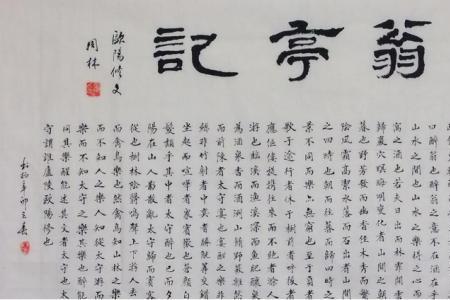 翁亭記
曰醉翁也醉翁之意不在酒在乎
山水之樂得之心而
寓之酒也若夫日出而林霏開
歸巖穴暝晦明變化者山間之朝
暮也野芳發而幽香佳木秀而
陰風霜高潔水落而石出者山
之四時也朝而往暮而歸四時之
景不同而樂亦無窮也至於負
歌于途行者休于樹前者呼後者
應傴僂提攜往來而不絕者滁人
游也臨溪而漁溪深而魚肥釀泉
為酒泉香而酒洌山肴野蔌雜然
而前陳者太守宴也宴酣之樂非
絲非竹射者中弈者勝觥籌交錯
坐起而諠譁者眾賓懽也蒼顏白
髮頹乎其中者太守醉也已而夕
陽在山人影散亂太守歸而賓客
從也樹林陰翳鳴聲上下游人去
而禽鳥樂也然禽鳥知山林之樂
而不知人之樂人知從太守游而
樂而不知太守之樂其樂也醉能
同其樂醒能述其文者太守也太
守謂誰廬陵歐陽修也
歐陽修文
周林
辛卯之春